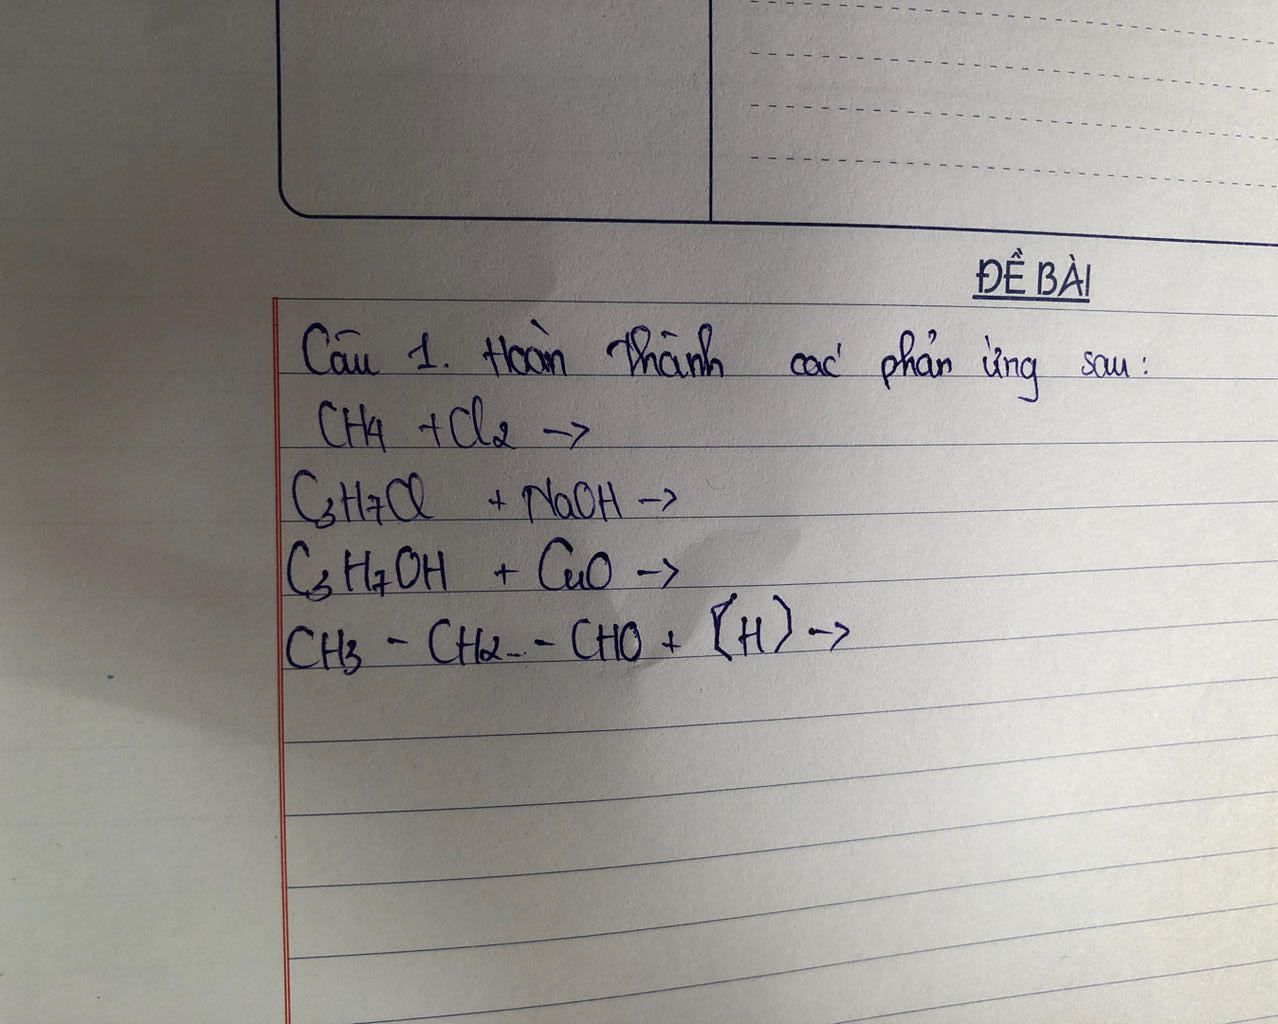 ĐỀ BÀI
Câu 1. Hoàn thành các phản ứng sau:
CH4 + Cl2 →
C3H7Cl + NaOH →
C3H7OH + CuO →
CH3 - CH2 - CHO + [H] →